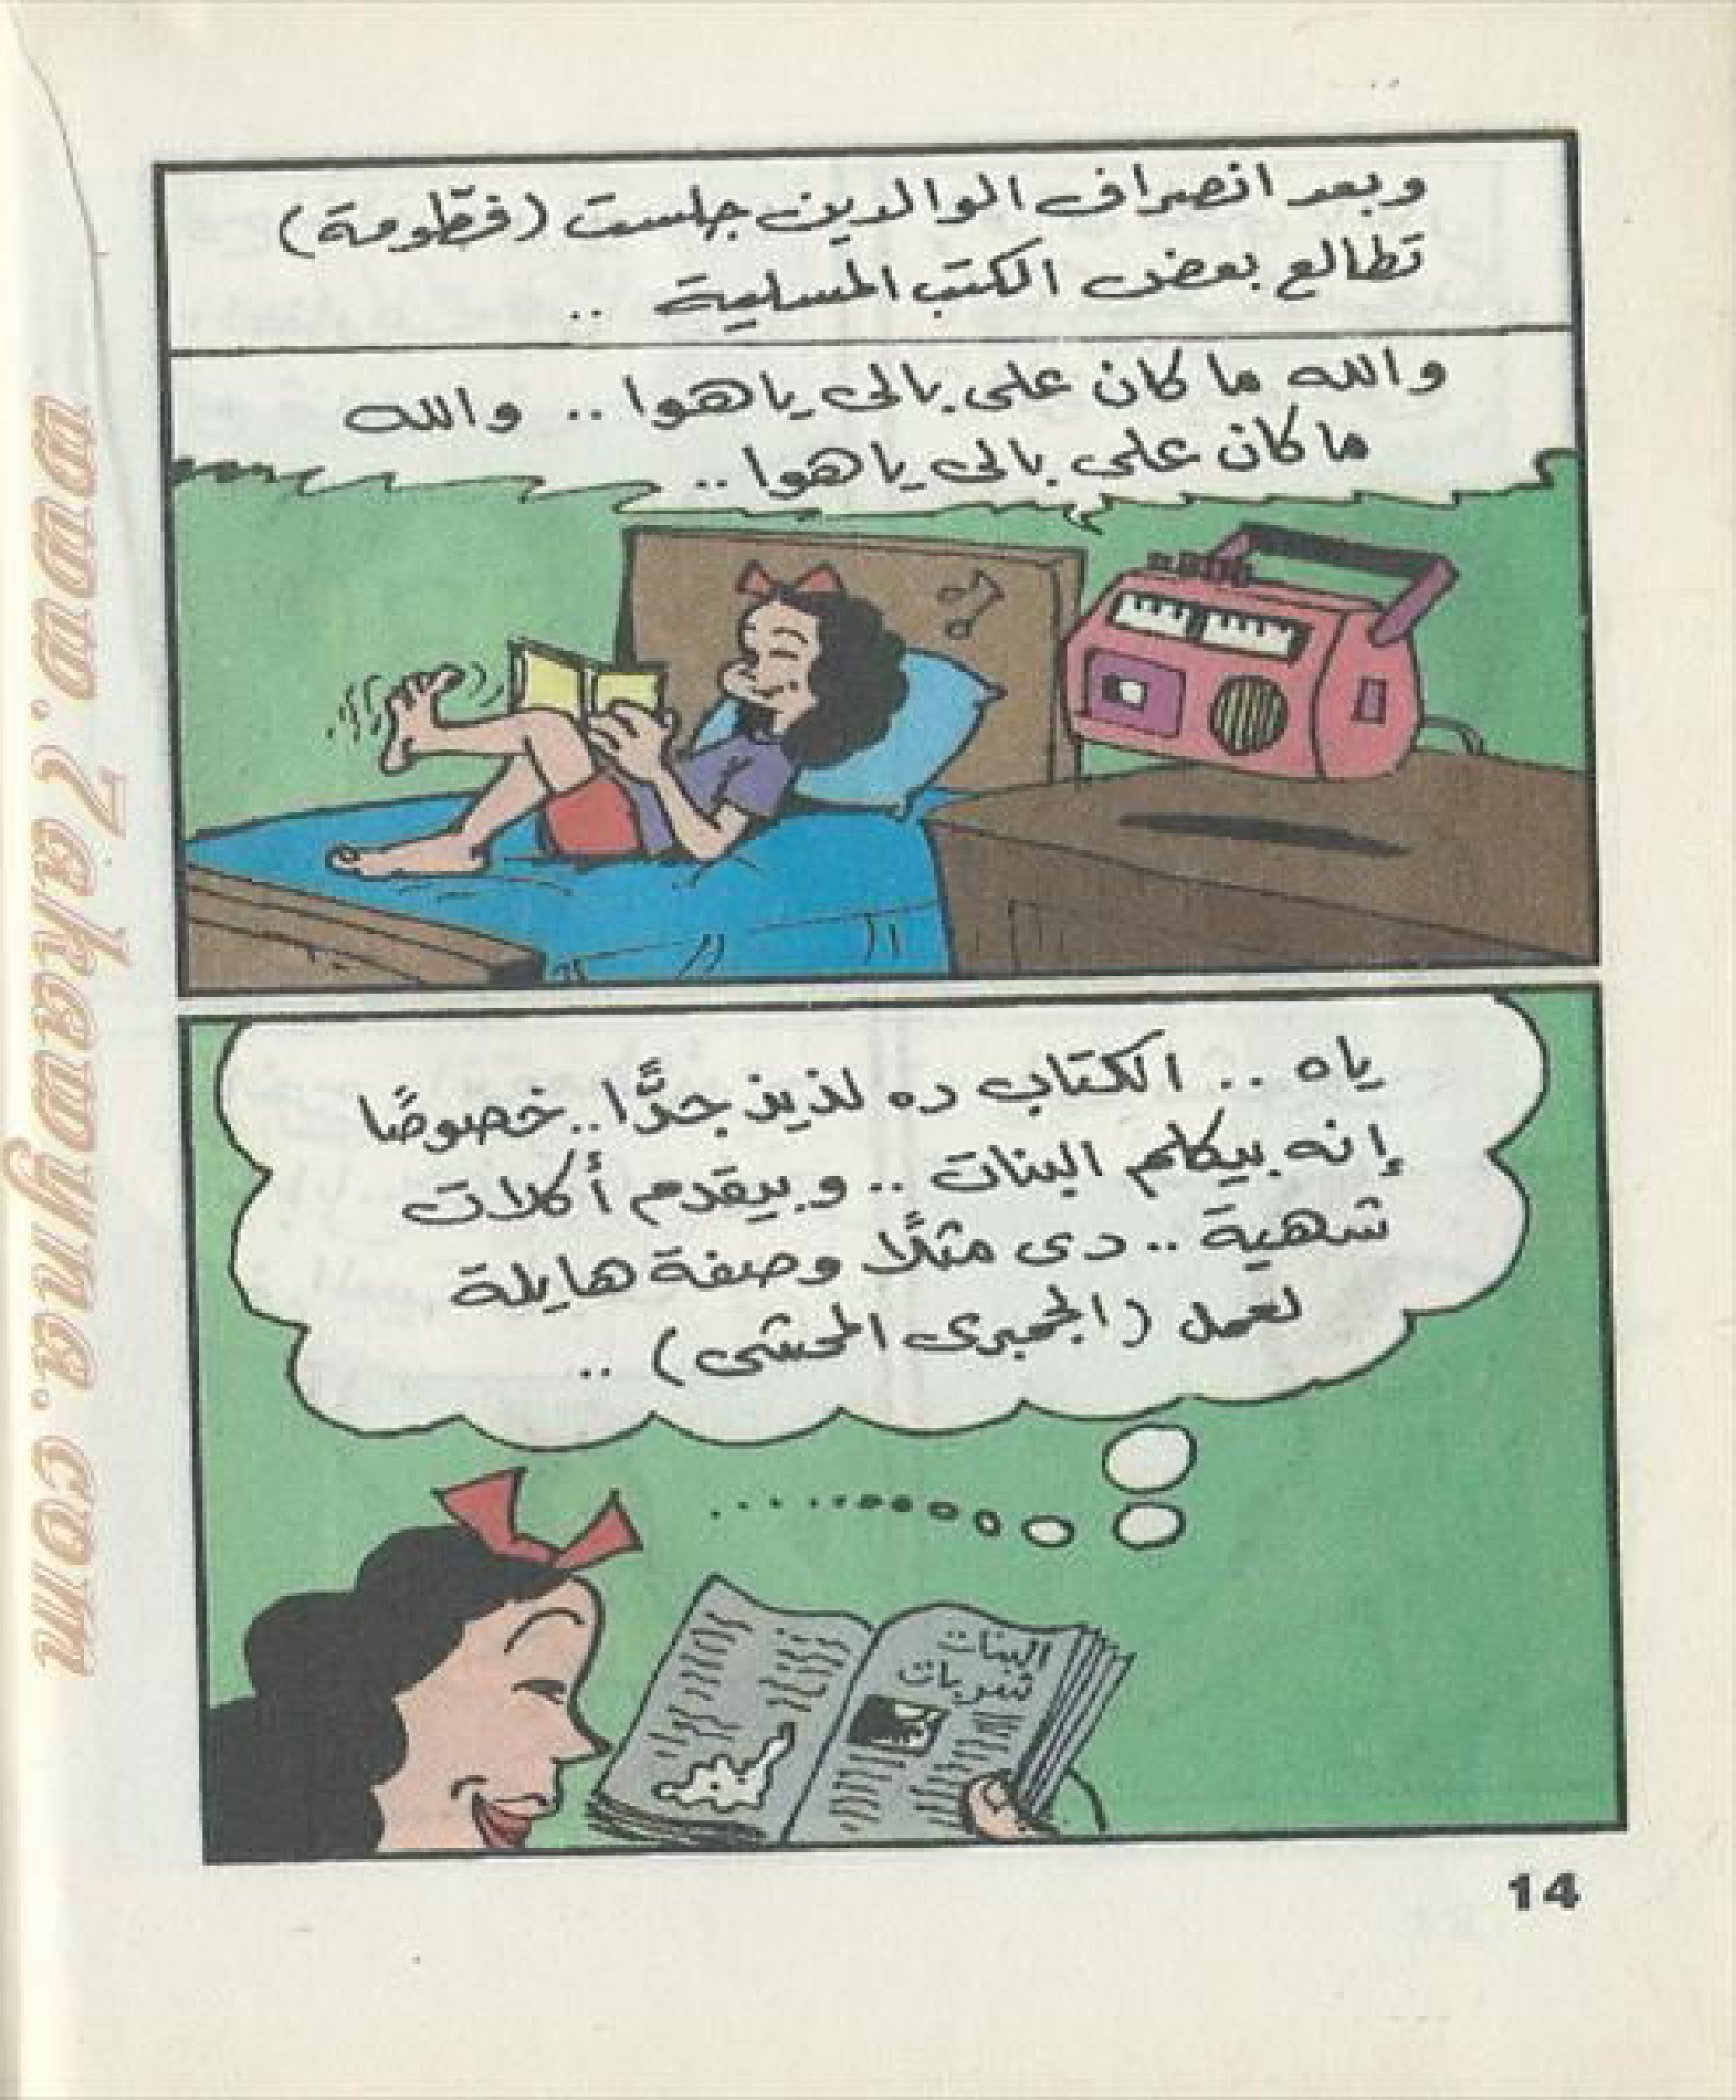 وبعد انصراف الوالدين جلست (فطومة)
تطالع بعض الكتب المسلية ..
والله ما كان على بالى ياهوا .. والله
ما كان على بالى ياهوا ..
ياه .. الكتاب ده لذيذ جدًّا .. خصوصًا
إنه بيكلم البنات .. وبيقدم أكلات
شهية .. دى مثلًا وصفة هايلة
لعمل (الجمبرى المحشى) ..
البنات
شربات
14
www.7akawyuna.com